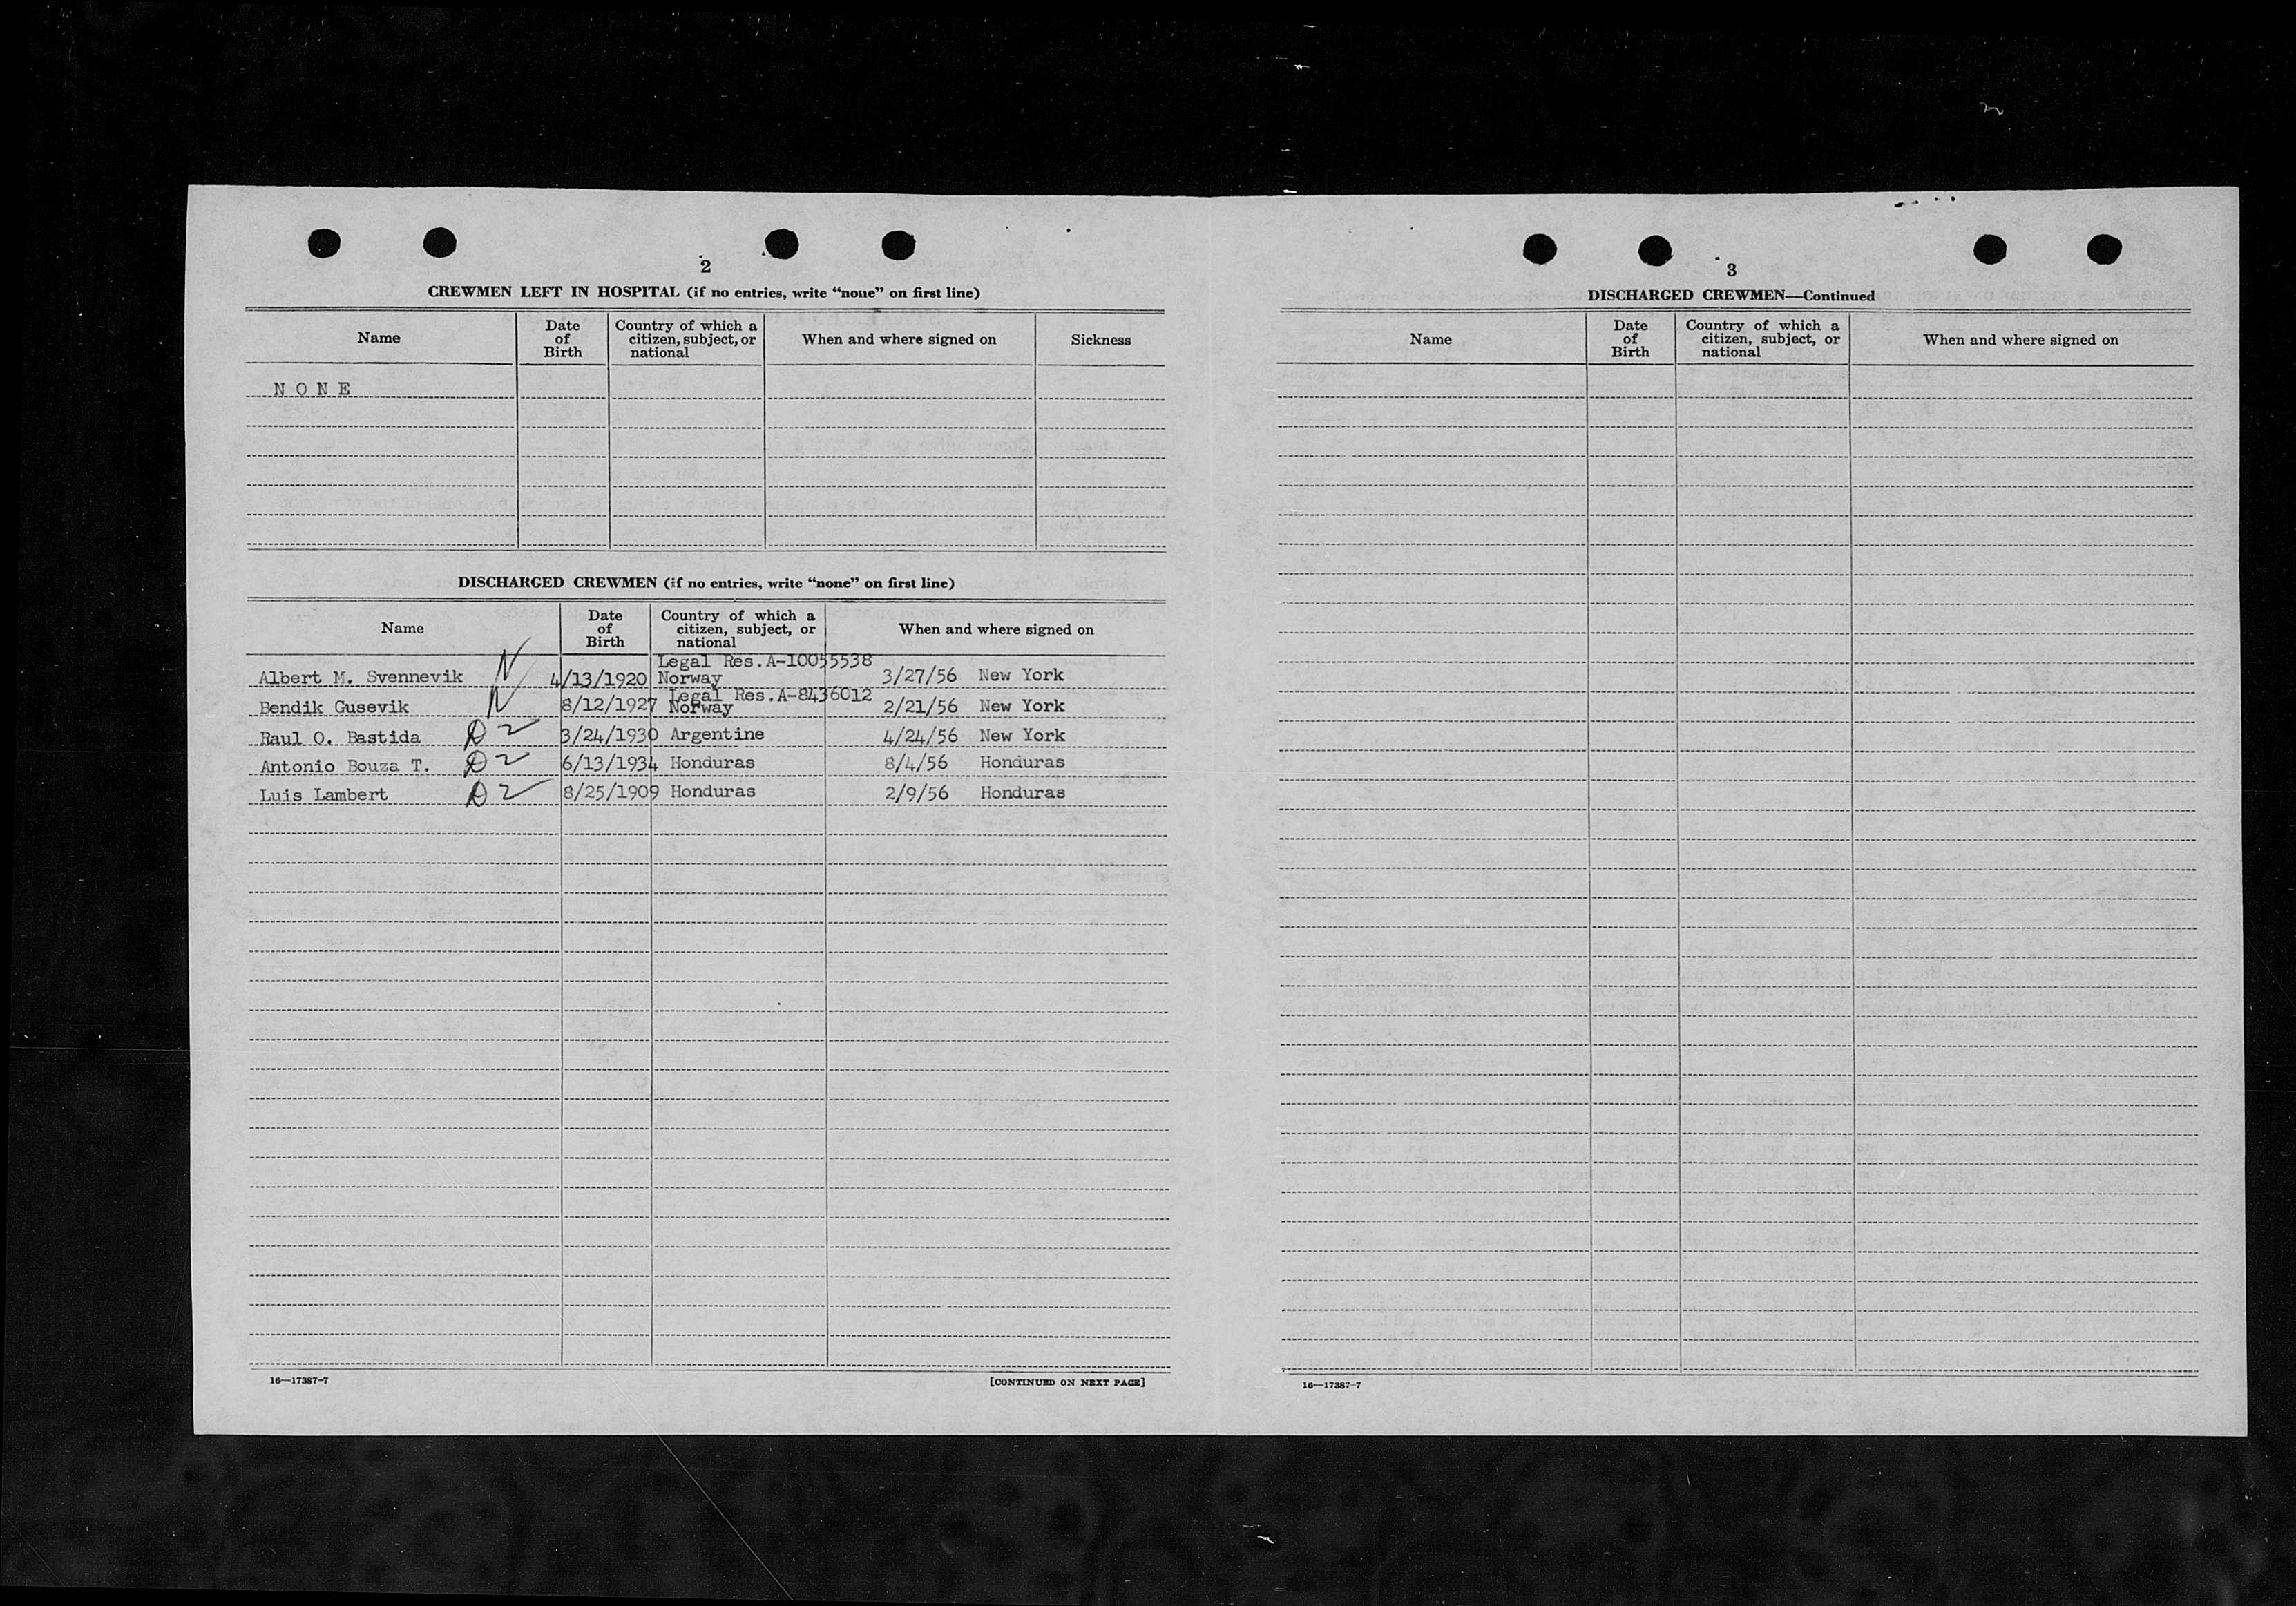 2
CREWMEN LEFT IN HOSPITAL (if no entries, write "none" on first line)
Name
Date of Birth
Country of which a citizen, subject, or national
When and where signed on
Sickness
N O N E
DISCHARGED CREWMEN (if no entries, write "none" on first line)
Name
Date of Birth
Country of which a citizen, subject, or national
When and where signed on
Legal Res.A-10055538
Albert M. Svennevik N 4/13/1920 Norway 3/27/56 New York
Legal Res.A-8436012
Bendik Gusevik N 8/12/1927 Norway 2/21/56 New York
Raul O. Bastida D2 3/24/1930 Argentine 4/24/56 New York
Antonio Bouza T. D2 6/13/1934 Honduras 8/4/56 Honduras
Luis Lambert D2 8/25/1909 Honduras 2/9/56 Honduras
16—17387-7
[CONTINUED ON NEXT PAGE]
3
DISCHARGED CREWMEN—Continued
Name
Date of Birth
Country of which a citizen, subject, or national
When and where signed on
16—17387-7